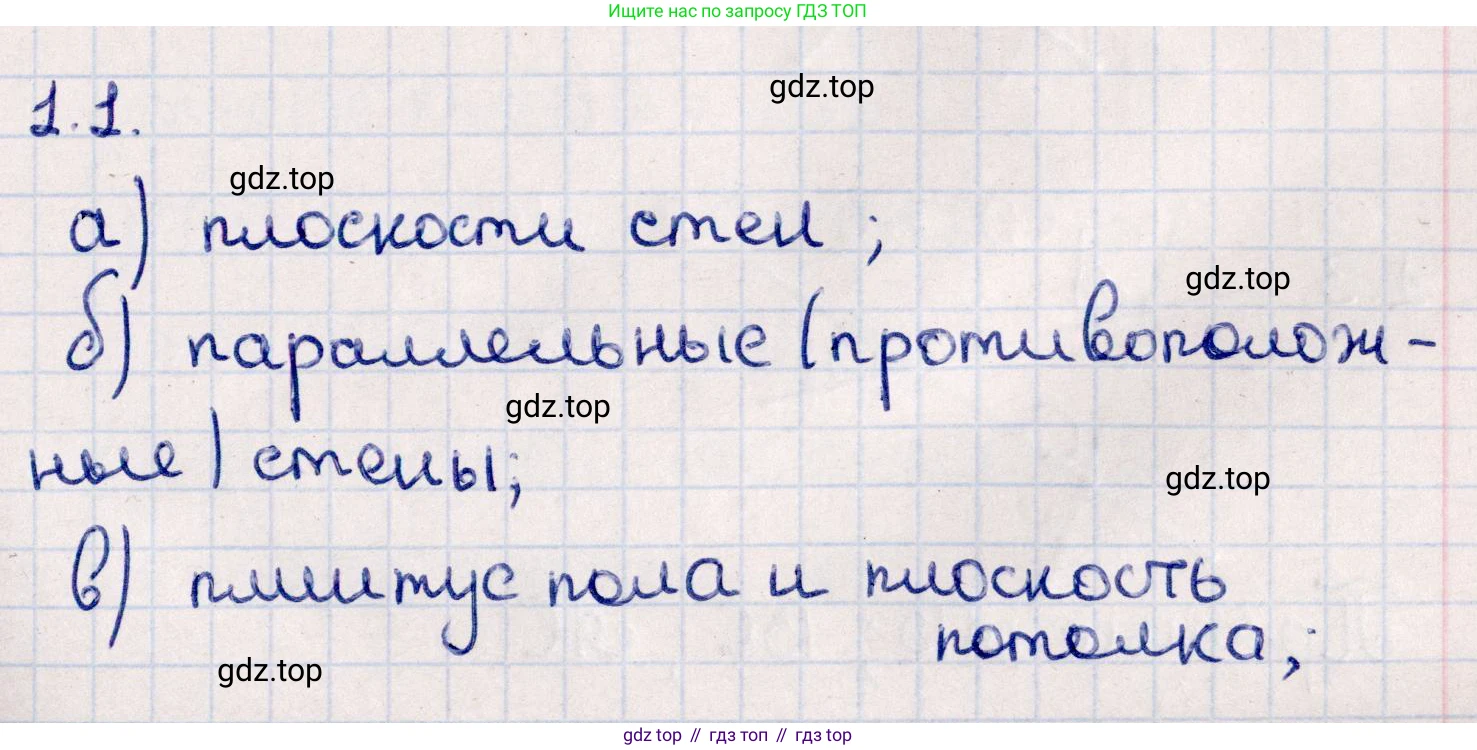 Ищите нас по запросу ГДЗ ТОП
gdz.top
1.1.
gdz.top
а) плоскости стен;
gdz.top
б) параллельные (противополож-
gdz.top
ные) стены;
gdz.top
в) плинтус пола и плоскость
потолка;
gdz.top
gdz top // гдз топ // гдз top